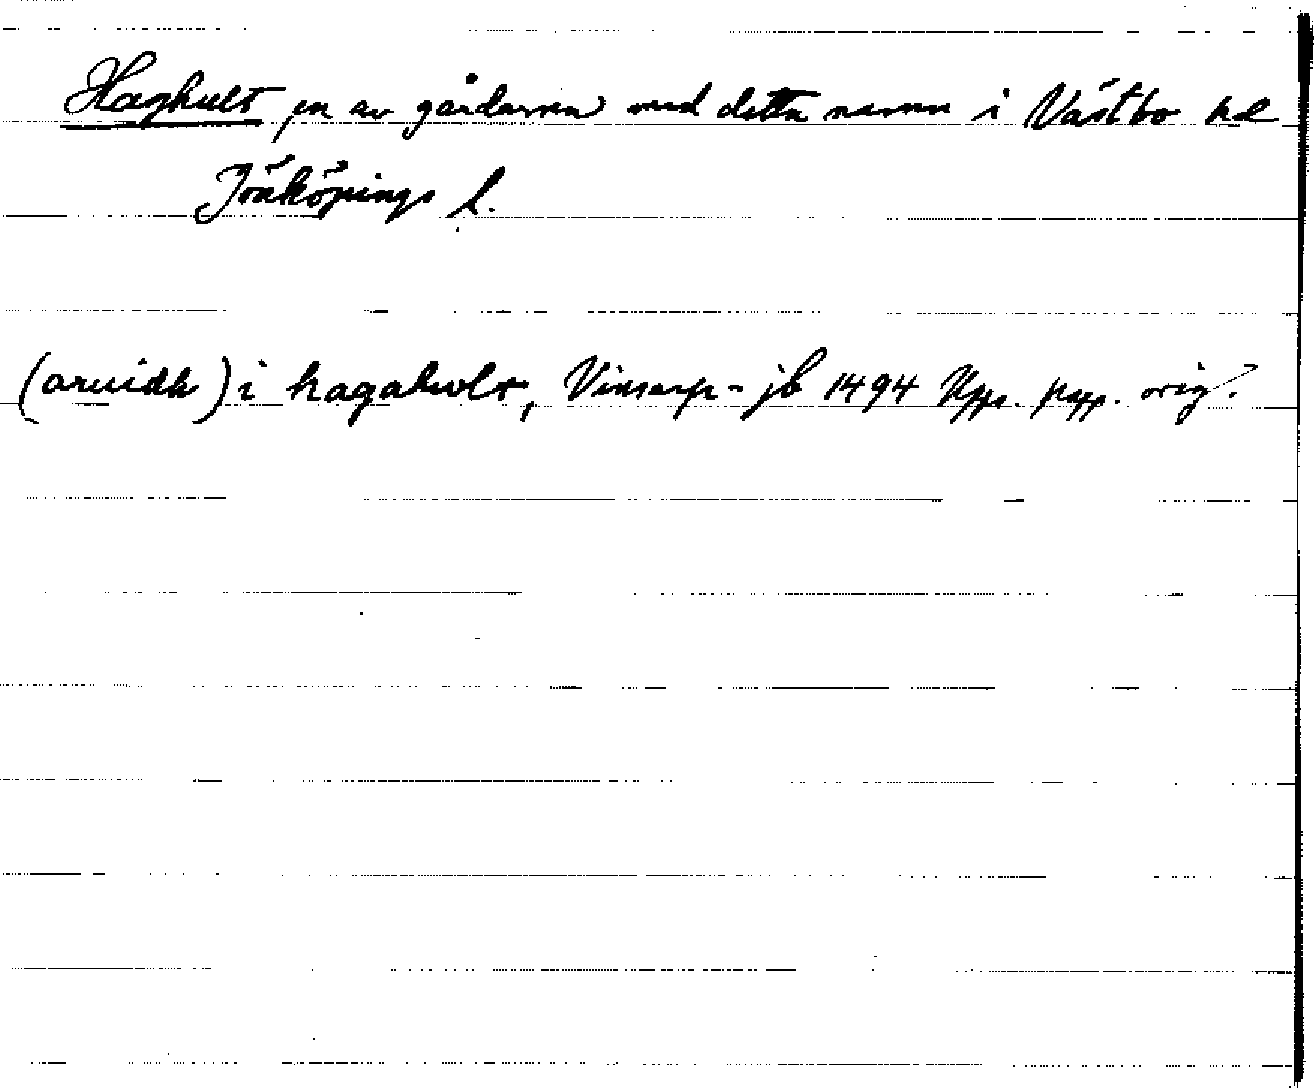 Haghult en av gårdarna med detta namn i Västbo hd
Jönköpings l.
(aruidh) i hagahult, Vinsarp-jb 1494 Upps. papp. orig.